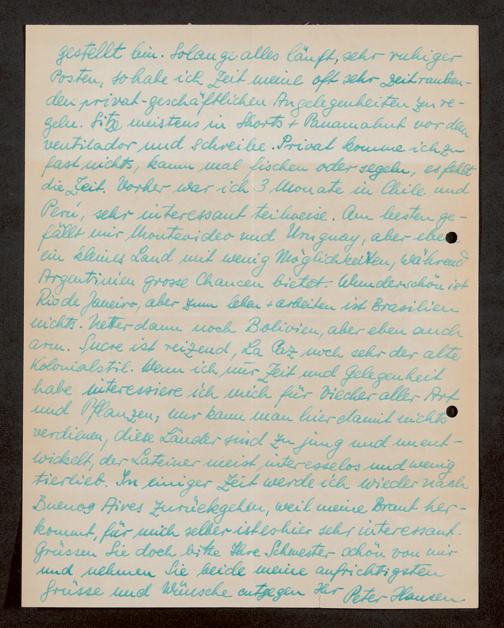 gestellt bin. Solange alles läuft, sehr ruhiger
Posten, so habe ich Zeit meine oft sehr zeitrauben-
den privat-geschäftlichen Angelegenheiten zu re-
geln. Sitze meistens in Shorts + Panamahut vor dem
ventilador und schreibe. Privat komme ich zu
fast nichts, kaum mal fischen oder segeln, es fehlt
die Zeit. Vorher war ich 3 Monate in Chile und
Perú, sehr interessant teilweise. Am besten ge-
fällt mir Montevideo und Uruguay, aber eben
ein kleines Land mit wenig Möglichkeiten, während
Argentinien grosse Chancen bietet. Wunderschön ist
Rio de Janeiro, aber zum leben + arbeiten ist Brasilien
nichts. Netter dann noch Bolivien, aber eben auch
arm. Sucre ist reizend, La Paz noch sehr der alte
Kolonialstil. Wenn ich mir Zeit und Gelegenheit
habe interessiere ich mich für Viecher aller Art
und Pflanzen, nur kann man hier damit nichts
verdienen, diese Länder sind zu jung und unent-
wickelt, der Lateiner meist interesselos und wenig
tierlieb. In einiger Zeit werde ich wieder nach
Buenos Aires zurückgehen, weil meine Braut her-
kommt, für mich selber ist es hier sehr interessant.
Grüssen Sie doch bitte Ihre Schwester schön von mir
und nehmen Sie beide meine aufrichtigsten
Grüsse und Wünsche entgegen Ihr Peter Hansen